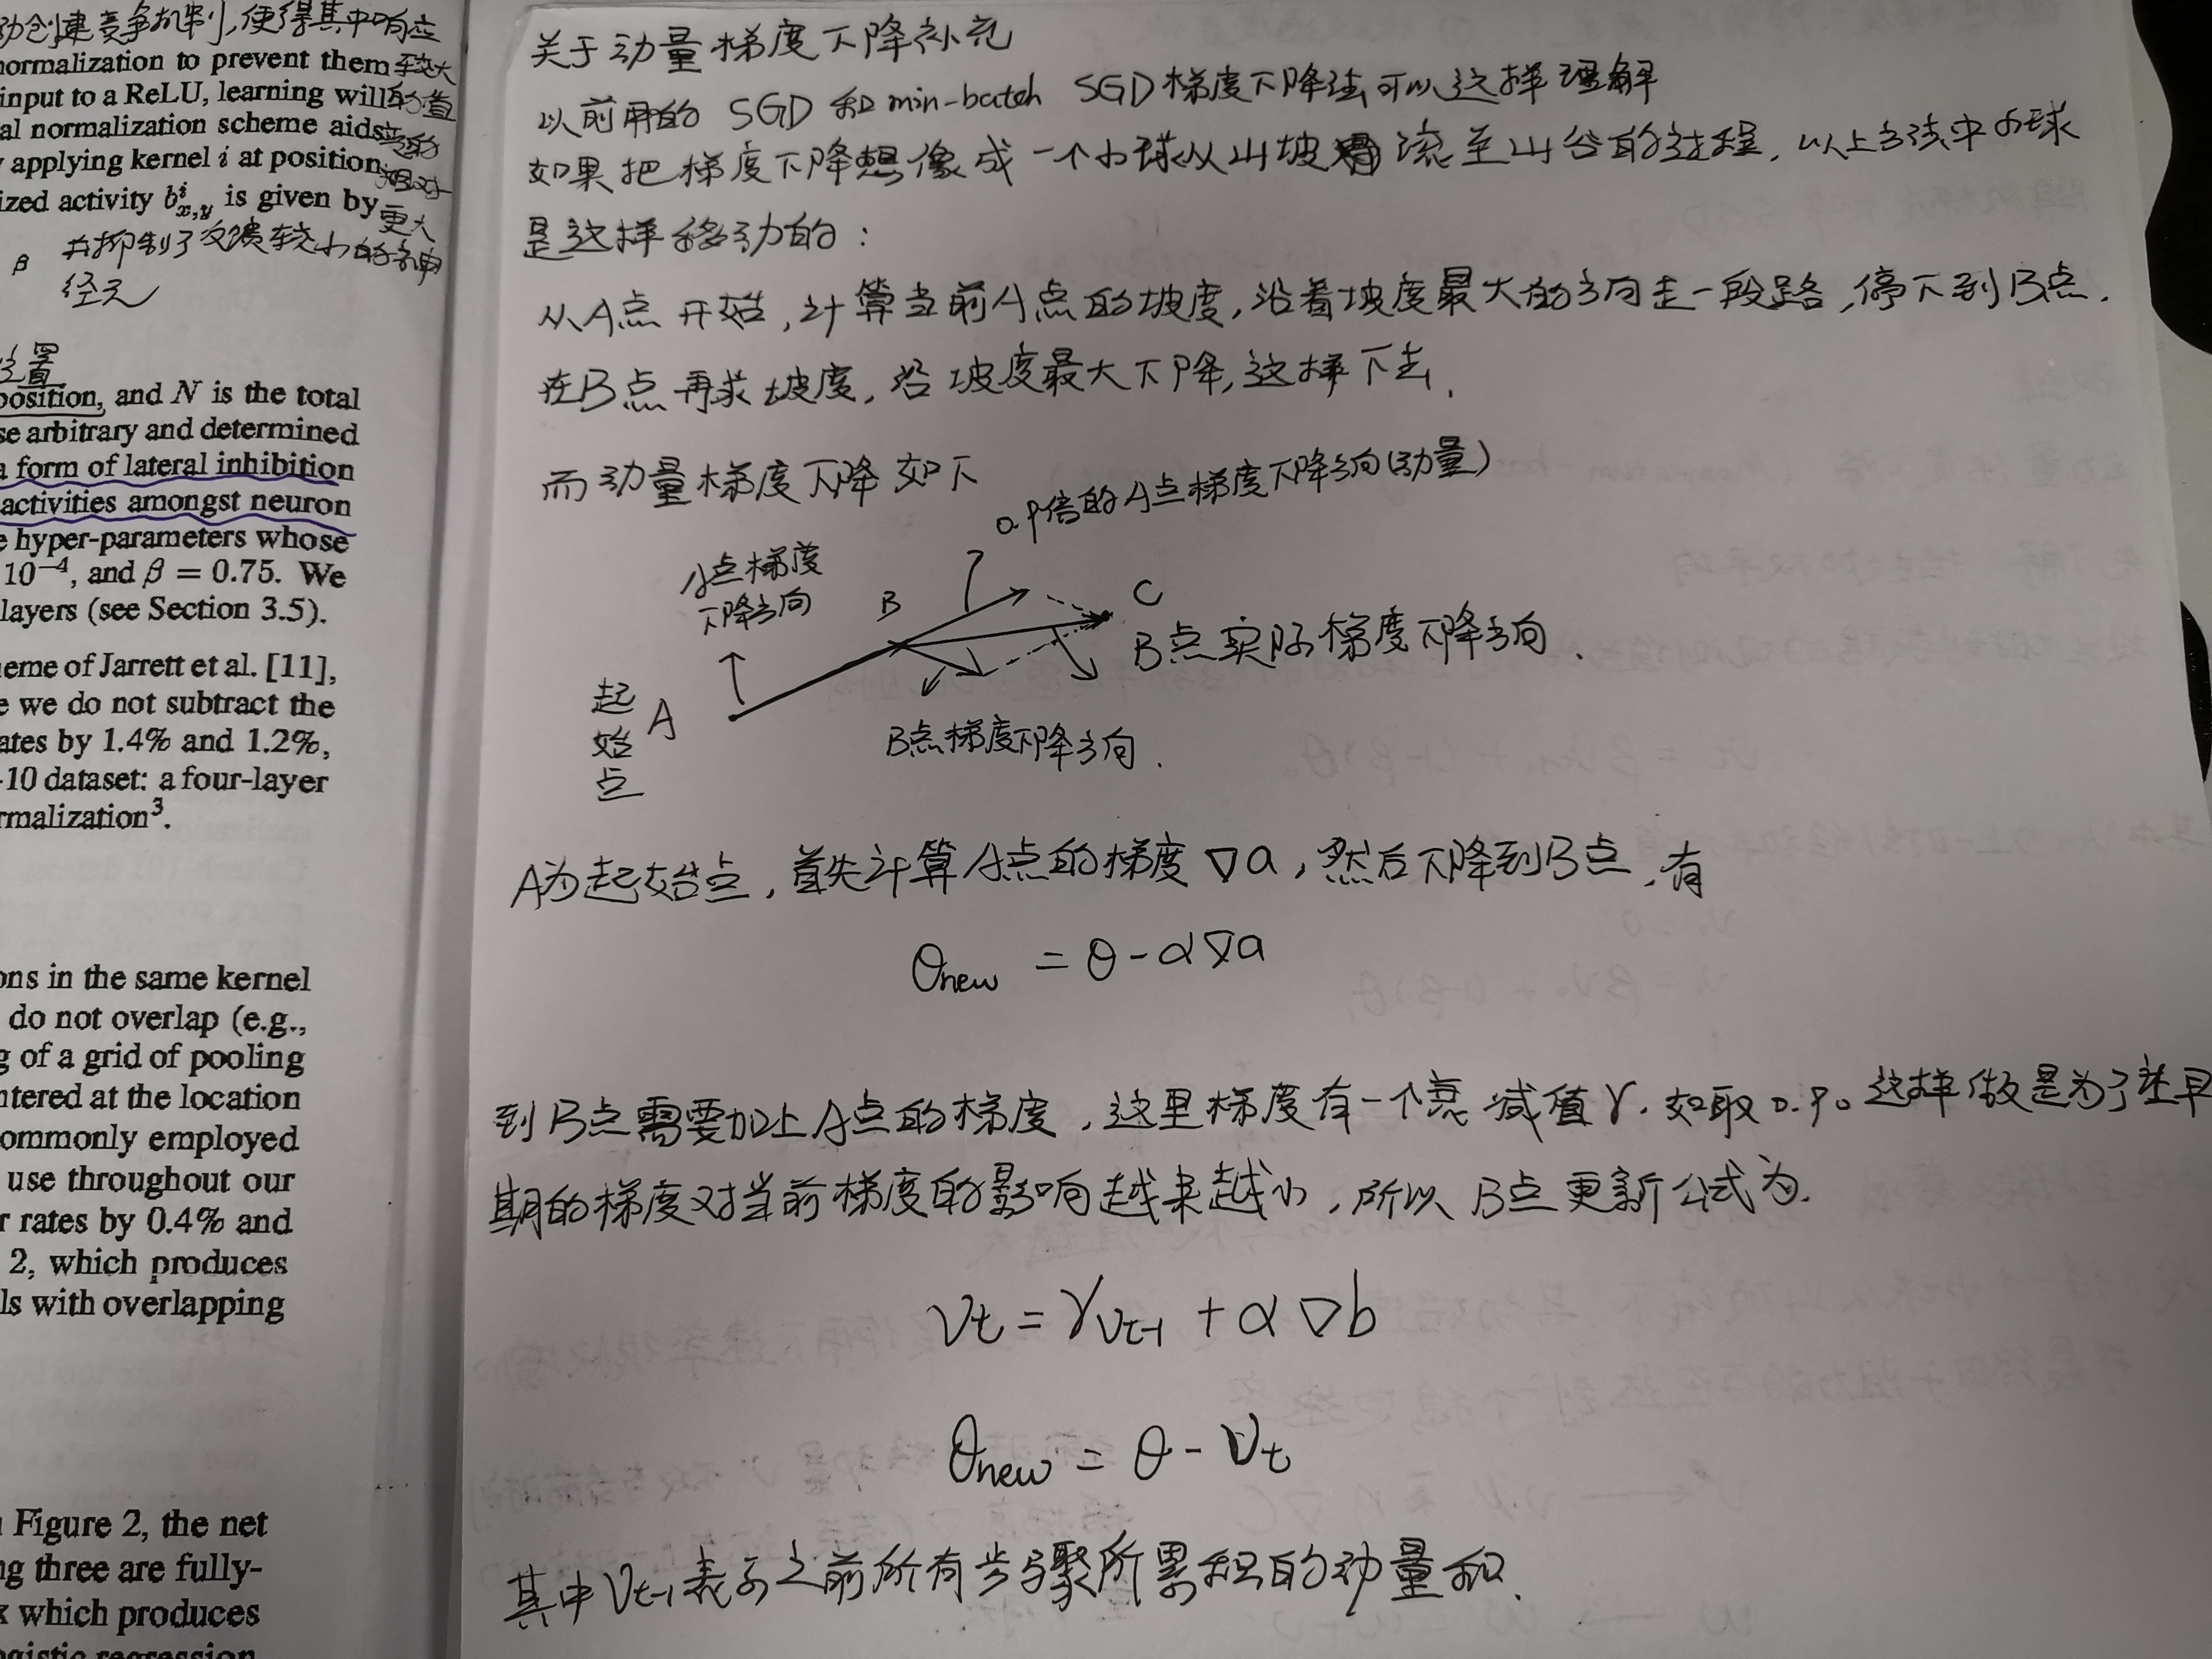 动创建竞争机制,使得其中响应
normalization to prevent them 较大
input to a ReLU, learning will 的值
al normalization scheme aids 变的
applying kernel i at position 相对
ized activity b^i_{x,y} is given by 更大
β 并抑制了反馈较小的神
经元
位置
position, and N is the total
se arbitrary and determined
a form of lateral inhibition
activities amongst neuron
e hyper-parameters whose
10⁻⁴, and β = 0.75. We
layers (see Section 3.5).
eme of Jarrett et al. [11],
e we do not subtract the
ates by 1.4% and 1.2%,
-10 dataset: a four-layer
rmalization³.
ons in the same kernel
do not overlap (e.g.,
g of a grid of pooling
ntered at the location
ommonly employed
use throughout our
r rates by 0.4% and
2, which produces
ls with overlapping
Figure 2, the net
ng three are fully-
x which produces
ogistic regression
关于动量梯度下降补充
以前用的 SGD 和 min-batch SGD 梯度下降法可以这样理解
如果把梯度下降想像成一个小球从山坡滚至山谷的过程,以上方法中小球
是这样移动的:
从A点开始,计算当前A点的坡度,沿着坡度最大的方向走一段路,停下到B点.
在B点再求坡度,沿坡度最大下降,这样下去.
而动量梯度下降如下
0.9倍的A点梯度下降方向(动量)
A点梯度
下降方向
B
C
B点实际梯度下降方向.
起
始
点
A
B点梯度下降方向.
A为起始点,首先计算A点的梯度∇a,然后下降到B点,有
θnew = θ-α∇a
到B点需要加上A点的梯度,这里梯度有一个衰减值γ.如取0.9。这样做是为了让早
期的梯度对当前梯度的影响越来越小,所以B点更新公式为.
νt = γνt-1 + α∇b
θnew = θ - νt
其中νt-1表示之前所有步骤所累积的动量和.